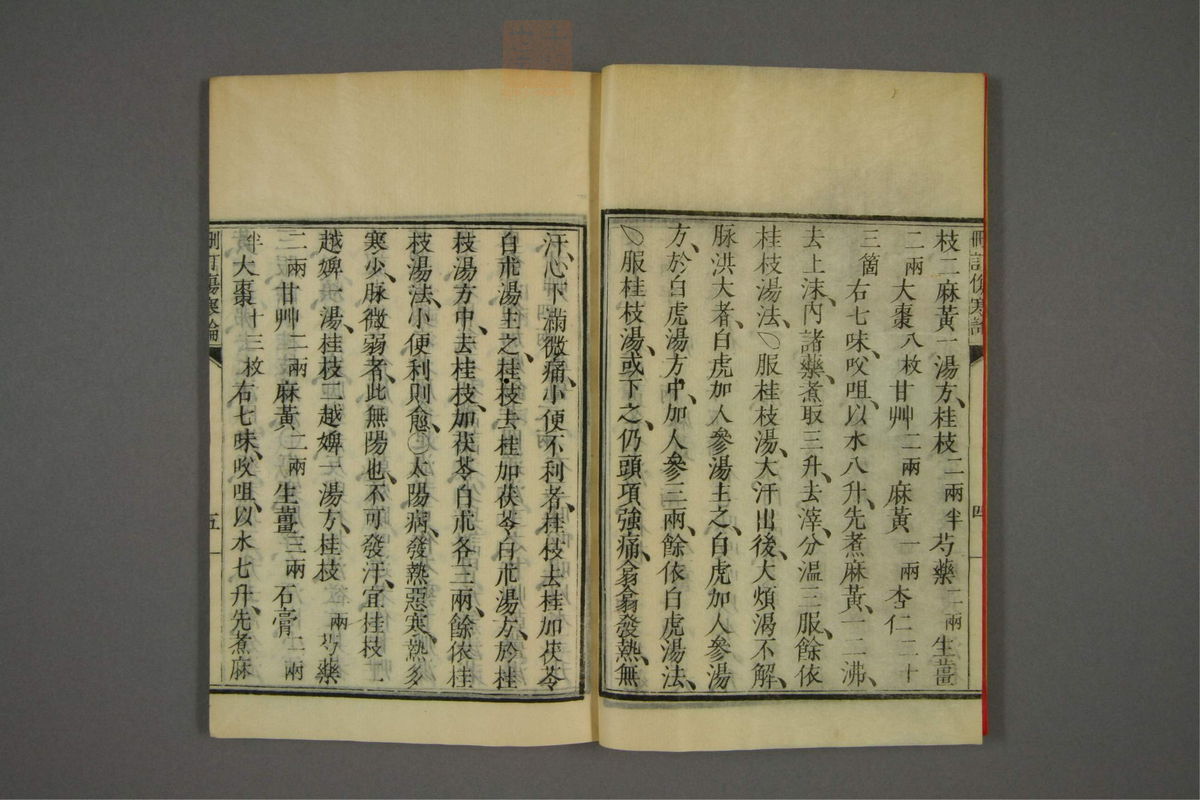 枝二麻黃一湯方、桂枝二兩半芍藥二兩生薑
二兩大棗八枚甘艸二兩麻黃一兩杏仁二十
三箇右七味㕮咀、以水八升、先煮麻黃、一二沸、
去上沫、內諸藥、煮取三升、去滓、分温三服、餘依
桂枝湯法、〇服桂枝湯、大汗出後、大煩渴不解、
脉洪大者、白虎加人參湯主之、白虎加人參湯
方、於白虎湯方中、加人參三兩、餘依白虎湯法、
〇服桂枝湯、或下之、仍頭項強痛、翕翕發熱、無
刪訂傷寒論
四
汗、心下滿微痛、小便不利者、桂枝去桂加茯苓
白朮湯主之、桂枝去桂加茯苓白朮湯方、於桂
枝湯方中、去桂枝、加茯苓白朮各三兩、餘依桂
枝湯法、小便利則愈、〇太陽病、發熱惡寒、熱多
寒少、脉微弱者、此無陽也、不可發汗、宜桂枝二
越婢一湯、桂枝二越婢一湯方、桂枝一兩芍藥
二兩甘艸二兩麻黃二兩生薑三兩石膏二兩
半大棗十三枚右七味、㕮咀、以水七升、先煮麻
刪訂傷寒論
五